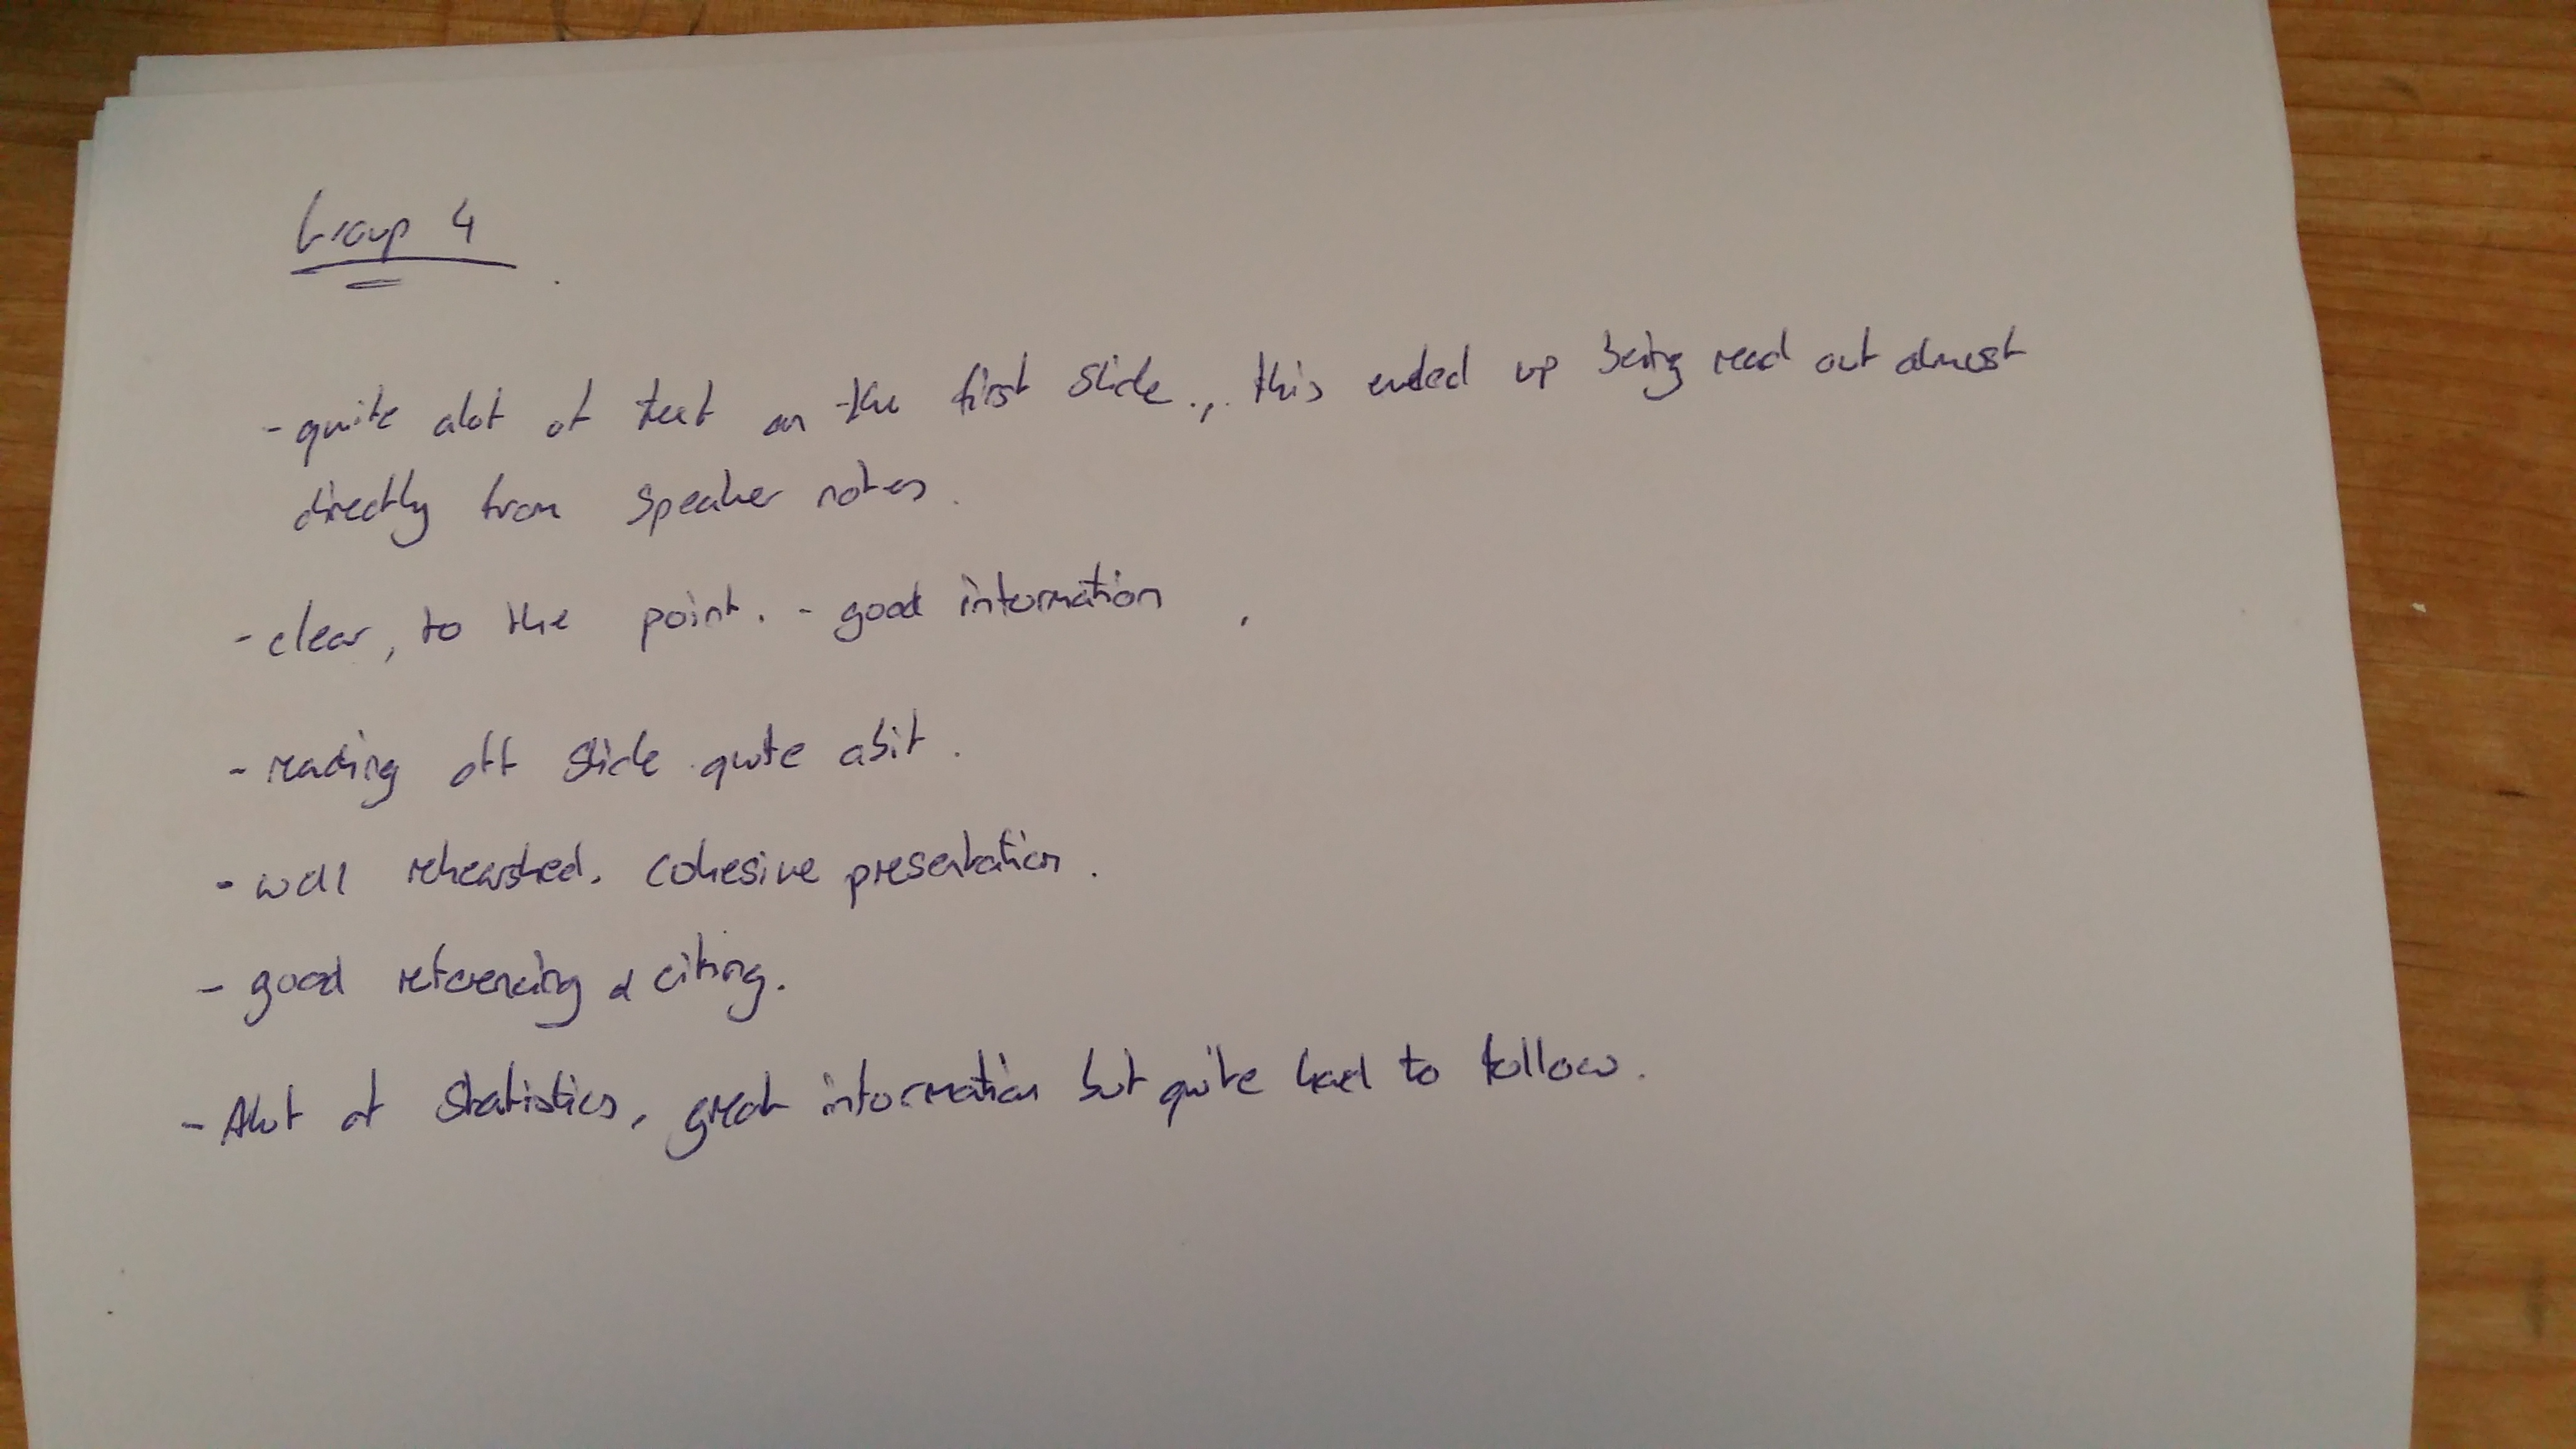 Group 4
- quite alot of text on the first slide., this ended up being read out almost
directly from speaker notes.
- clear, to the point. - good information
- reading off slide quite abit.
- well rehearshed. cohesive presentation.
- good referencing & citing.
- Alot of statistics, great information but quite hard to follow.